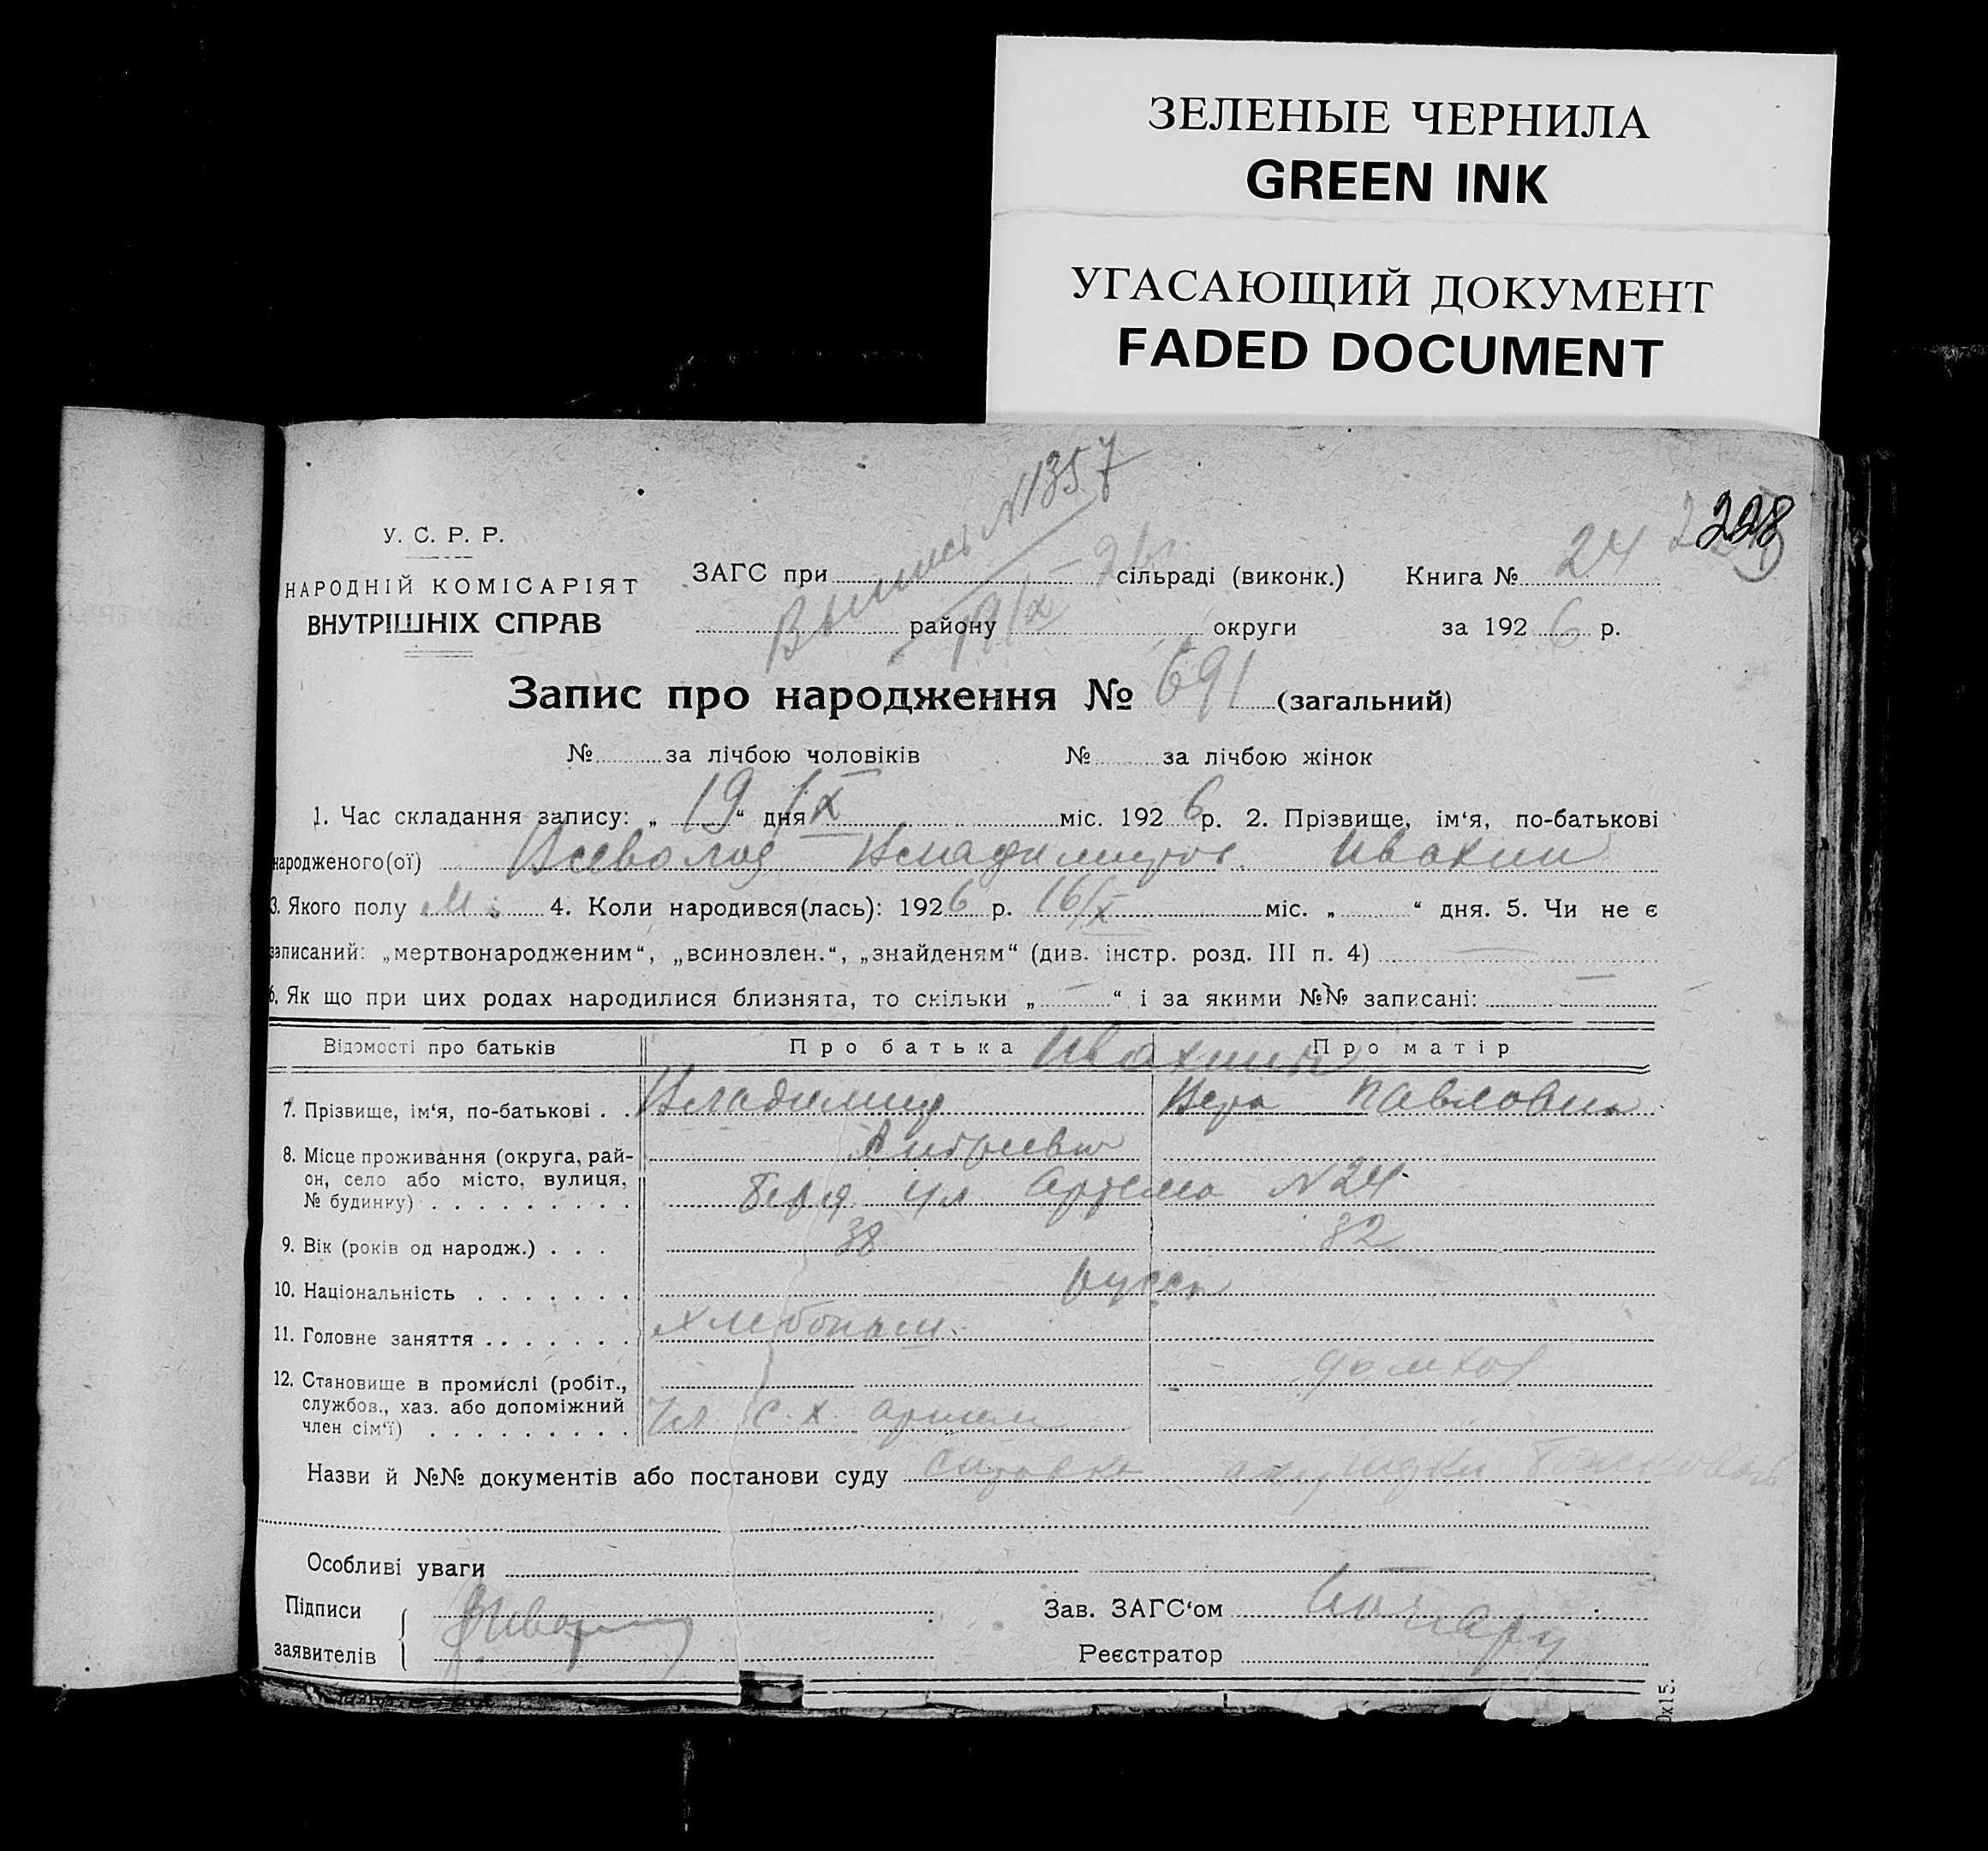 ЗЕЛЕНЫЕ ЧЕРНИЛА
GREEN INK
УГАСАЮЩИЙ ДОКУМЕНТ
FADED DOCUMENT
Выпись №1357
19/IX
228
У. С. Р. Р.
НАРОДНІЙ КОМІСАРІЯТ
ВНУТРІШНІХ СПРАВ
ЗАГС при сільраді (виконк.) Книга № 24
району округи за 1926 р.
Запис про народження № 691 (загальний)
№ за лічбою чоловіків № за лічбою жінок
1. Час складання запису: „ 19 “ дня IX міс. 1926 р. 2. Прізвище, ім‘я, по-батькові
народженого(ої) Всеволод Владимиров. Ивахин
3. Якого полу М. 4. Коли народився(лась): 1926 р. 16/IX міс. „ “ дня. 5. Чи не є
записаний: „мертвонародженим“, „всиновлен.“, „знайденям“ (див. інстр. розд. III п. 4) —
6. Як що при цих родах народилися близнята, то скільки „ — “ і за якими №№ записані: —
Відомості про батьків Про батька Ивахины Про матір
7. Прізвище, ім‘я, по-батькові . . Владимир Вера Павловна
8. Місце проживання (округа, рай-
он, село або місто, вулиця, ул Артема №24
№ будинку) . . . . . . . . .
9. Вік (років од народж.) . . . 38 32
10. Національність . . . . . . . русск
11. Головне заняття . . . . . . . хлебопаш.
12. Становище в промислі (робіт., домхоз
службов., хаз. або допоміжний
член сім‘ї) . . . . . . . . . Чл с.х. артели
Назви й №№ документів або постанови суду справка акушерки
Особливі уваги
Підписи Зав. ЗАГС‘ом
заявителів Реєстратор